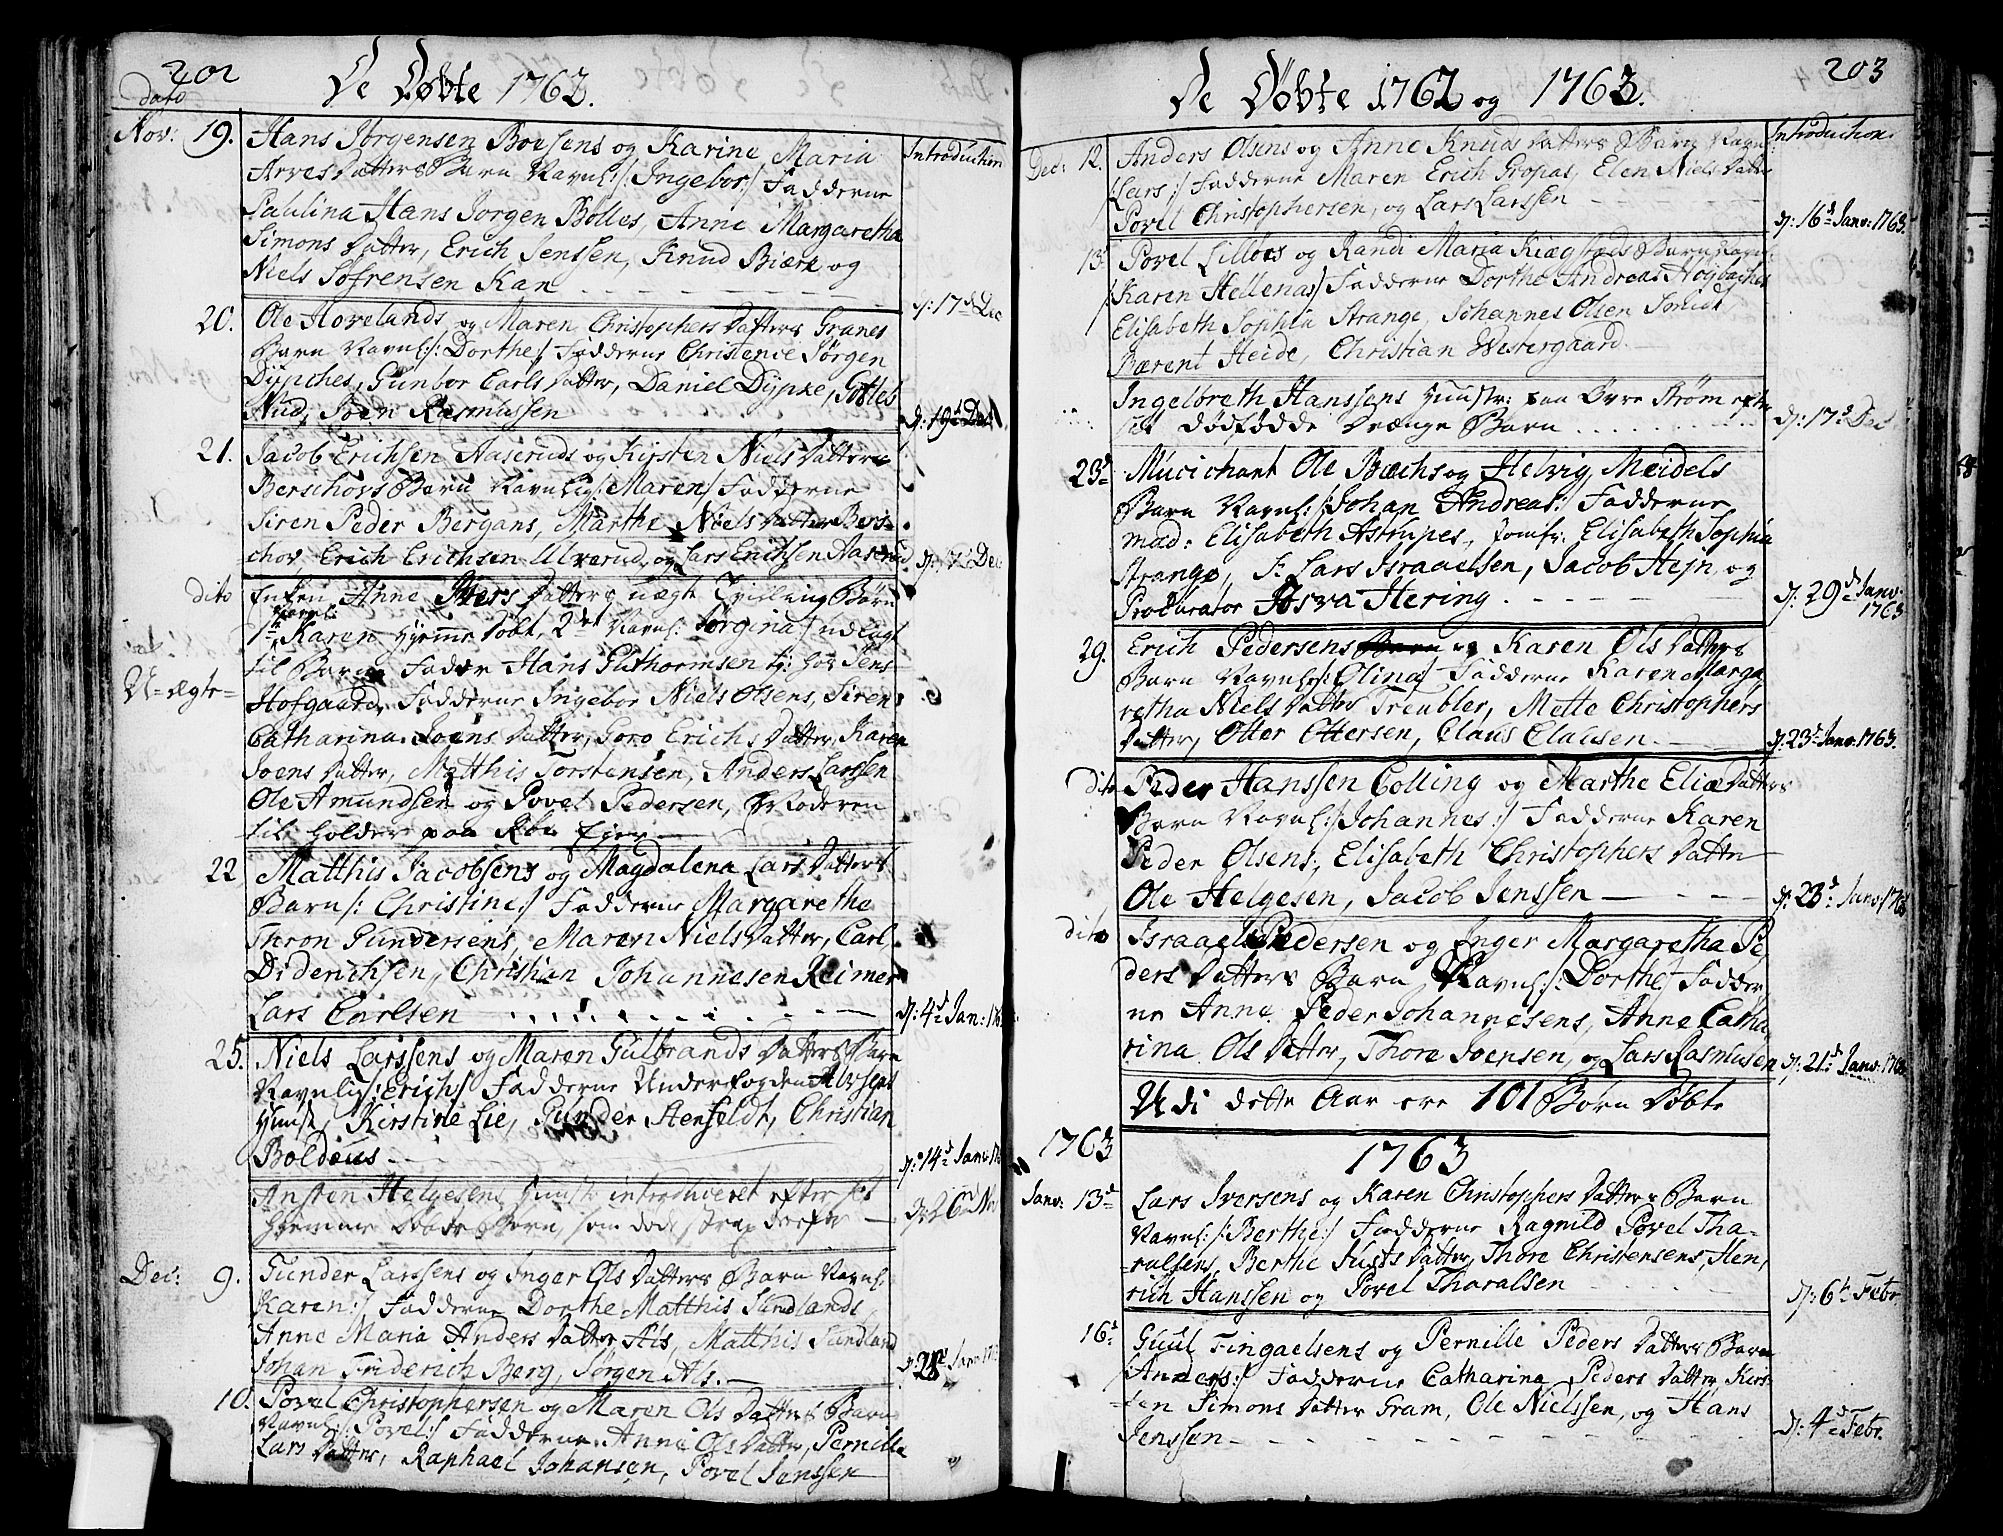 202
De Døbte 1762.
dato
Introduction
Nov: 19. Hans Jørgensen Boesens og Karine Maria
Arves Datters Barn Navnl: /: Ingebor :/ Fadderne
Paulina Hans Jørgen Bolles, Anne Margaretha
Simons Datter, Erich Jenssen, Knud Biærk og
Niels Søfrensen Kan d: 17d Dec
20. Ole Hovelands og Maren Christophers Datters Granes
Barn Navnl: /: Dorthe :/ Fadderne Christence Jørgen
Dypches, Gunbor Carls Datter, Daniel Dypke, Gotles
Nud, Joen Rasmussen d: 19d Dec
21. Jacob Erichsen Aaseruds og Kirsten Niels Datters
Berschovs Barn Navnlig /: Maren :/ Fadderne
Siren Peder Bergans, Marthe Niels Datter Bers-
chov, Erich Erichsen Ulverud, og Lars Erichsen Aaserud d: Dec
dito Enken Anne Ivers Datters uægte Tvilling Børn
1te Navnl: Karen hjemme døbt, 2den Navnl: Jørgina :/ udlagt
til Barne Fader Hans Guthormsen tj: hos Jens
U-ægte- Hofgaard, Fadderne Ingebor Niels Olsens, Siren
Catharina Joens Datter, Goro Erichs Datter, Karen
Joens Datter, Matthis Torstensen, Anders Larssen
Ole Amundsen og Povel Pedersen, Moderen
til holder paa Eger
22 Matthis Jacobsens og Magdalena Lars Datters
Barn /: Christine :/ Fadderne Margarethe
Thron Gundersens, Maren Niels Datter, Carl
Diderichsen, Christian Johannesen Reimer
Lars Carlsen d: 4d Jan: 176
25. Niels Larssens og Maren Gulbrands Datters Barn
Navnlig /: Erich :/ Fadderne Underfogden
Hustr, Kirstine Lie, Gunder Stenfeldt, Christian
Boldeus d: 14d Janv: 17
Ansten Helgesens Hustr introduceret efter sit
hjemme døbte Barn, som døde strax derefter d: 26d Nov
Dec: 9. Gunder Larssens og Inger Ols Datters Barn Navnl:
Karen :/ Fadderne Dorthe Matthis Sundlands
Anne Maria Anders Datter Aas, Matthis Sundland
Johan Friderich Berg, Jørgen Als. d: 28d Janv: 176
10. Povel Christophersen og Maren Ols Datters Barn
Navnl: /: Povel :/ Fadderne Anne Ols Datter, Pernille
Lars Datter, Raphael Johansen, Povel Jenssen
203
De Døbte 1762 og 1763.
Introduction
Dec: 12. Anders Olsens og Anne Knuds Datters Barn Navnl:
/: Lars :/ Fadderne Maren Erich Gropas, Elen Niels Datter
Povel Christophersen, og Lars Larssen d: 16d Janv: 1763.
13. Povel Lilloes og Randi Maria Kiægstads Barn Navnl:
/: Karen Hellena :/ Fadderne Dorthe Andreas Høybaches
Elisabeth Sophia Strange, Johannes Olsen Smidt
Bærent Heide, Christian Westergaard.
Ingebreth Hanssens Hustr: paa Øvre Strøm efter
sit dødfødde Drænge Barn d: 17d Dec
23d Mucichant Ole Bachs og Helvig Meidels
Barn Navnl: /: Johan Andreas: Fadderne
Mad: Elisabeth Astrupes, Jomfr: Elisabeth Sophia
Strange, Sr Lars Israaelsen, Jacob Hejn og
Procurator Josva Hering d: 29d Janv: 1763
29. Erich Pedersens og Karen Ols Datters
Barn Navnl: /: Olina :/ Fadderne Karen Marga
retha Niels Datter Treubler, Mette Christophers
Datter, Otter Ottersen, Claus Clausen d: 23d Janv: 1763.
dito Peder Hanssen Colling og Marthe Eliæ Datters
Barn Navnl: /: Johannes :/ Fadderne Karen
Peder Olsens, Elisabeth Christophers Datter
Ole Helgesen, Jacob Jenssen d: 23d Janv: 1763
dito Israael Pedersen og Inger Margaretha Pe
ders Datters Barn Navnl: /: Dorthe :/ Fadder
ne Anne Peder Johannesens, Anne Catha
rina Ols Datter, Thore Joensen, og Lars Rasmusen d: 21d Janv: 1763
Udi dette Aar ere 101 Børn Døbte
1763 1763
Janv: 13d Lars Iversens og Karen Christophers Datters Barn
Navnl: /: Berthe :/ Fadderne Ragnild Povel Tha-
ralsens, Berthe Justs Datter, Thore Christensens, Hen,
rich Hanssen og Povel Tharalsen d: 6te Febr
16d Guul Fingaelsens og Pernille Peders Datters Barn
/: Anders :/ Fadderne Catharina Peders Datter, Kirs-
ten Simons Datter Gram, Ole Nielssen, og Hans
Jenssen d: 4d Febr.